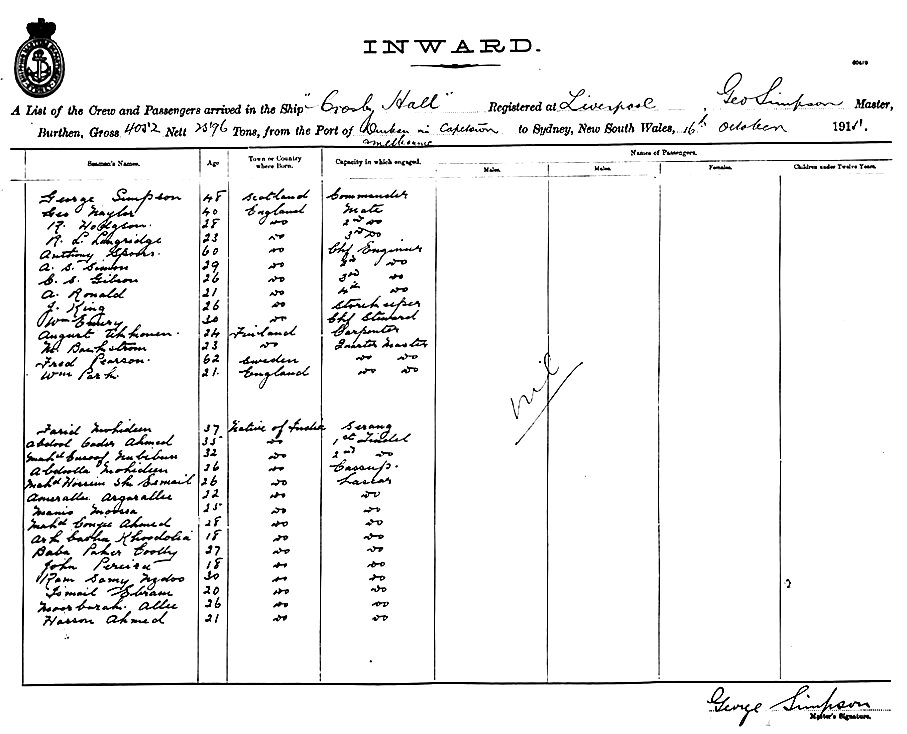 INWARD.
A List of the Crew and Passengers arrived in the Ship "Crosby Hall" Registered at Liverpool, Geo Simpson Master,
Burthen, Gross 4052 Nett 2596 Tons, from the Port of Capetown to Sydney, New South Wales, 16th October 1911.
Melbourne
Seaman's Names. Age Town or Country where Born. Capacity in which engaged. Names of Passengers.
Males. Males. Females. Children under Twelve Years.
George Simpson 48 Scotland Commander
Geo Naylor 40 England Mate
R. Hodgson. 28 do 2nd do
R. L. Langridge 23 do 3rd do
Anthony Spoors. 60 do Chf Engineer
A. S. Simon 29 do 2nd do
C. S. Gilson 26 do 3rd do
A. Ronald 21 do 4th do
J. King 26 do Storekeeper
Wm Emery 30 do Chf Steward
August 24 Finland Carpenter
M. Backstrom 23 do Quarter Master
Fred Pearson. 62 Sweden do do
Wm Park. 21. England do do
nil
Farid Mohideen 37 Native of India Serang
Abdool Cader Ahmed 35 do 1st Tindel
Mahd 32 do 2nd do
Abdoolla Mohideen 26 do Cassup.
Mahd Hossein Sk Esmail 26 do Lascar
Amerallee Argarallee 22 do do
Manis Moosa 25 do do
Mahd Ahmed 28 do do
Khoodolia 18 do do
Baba 27 do do
John Pereira 18 do do
Ram Samy 30 do do
Ismail Ebram 20 do do
Allee 26 do do
Hasson Ahmed 21 do do
George Simpson
Master's Signature.